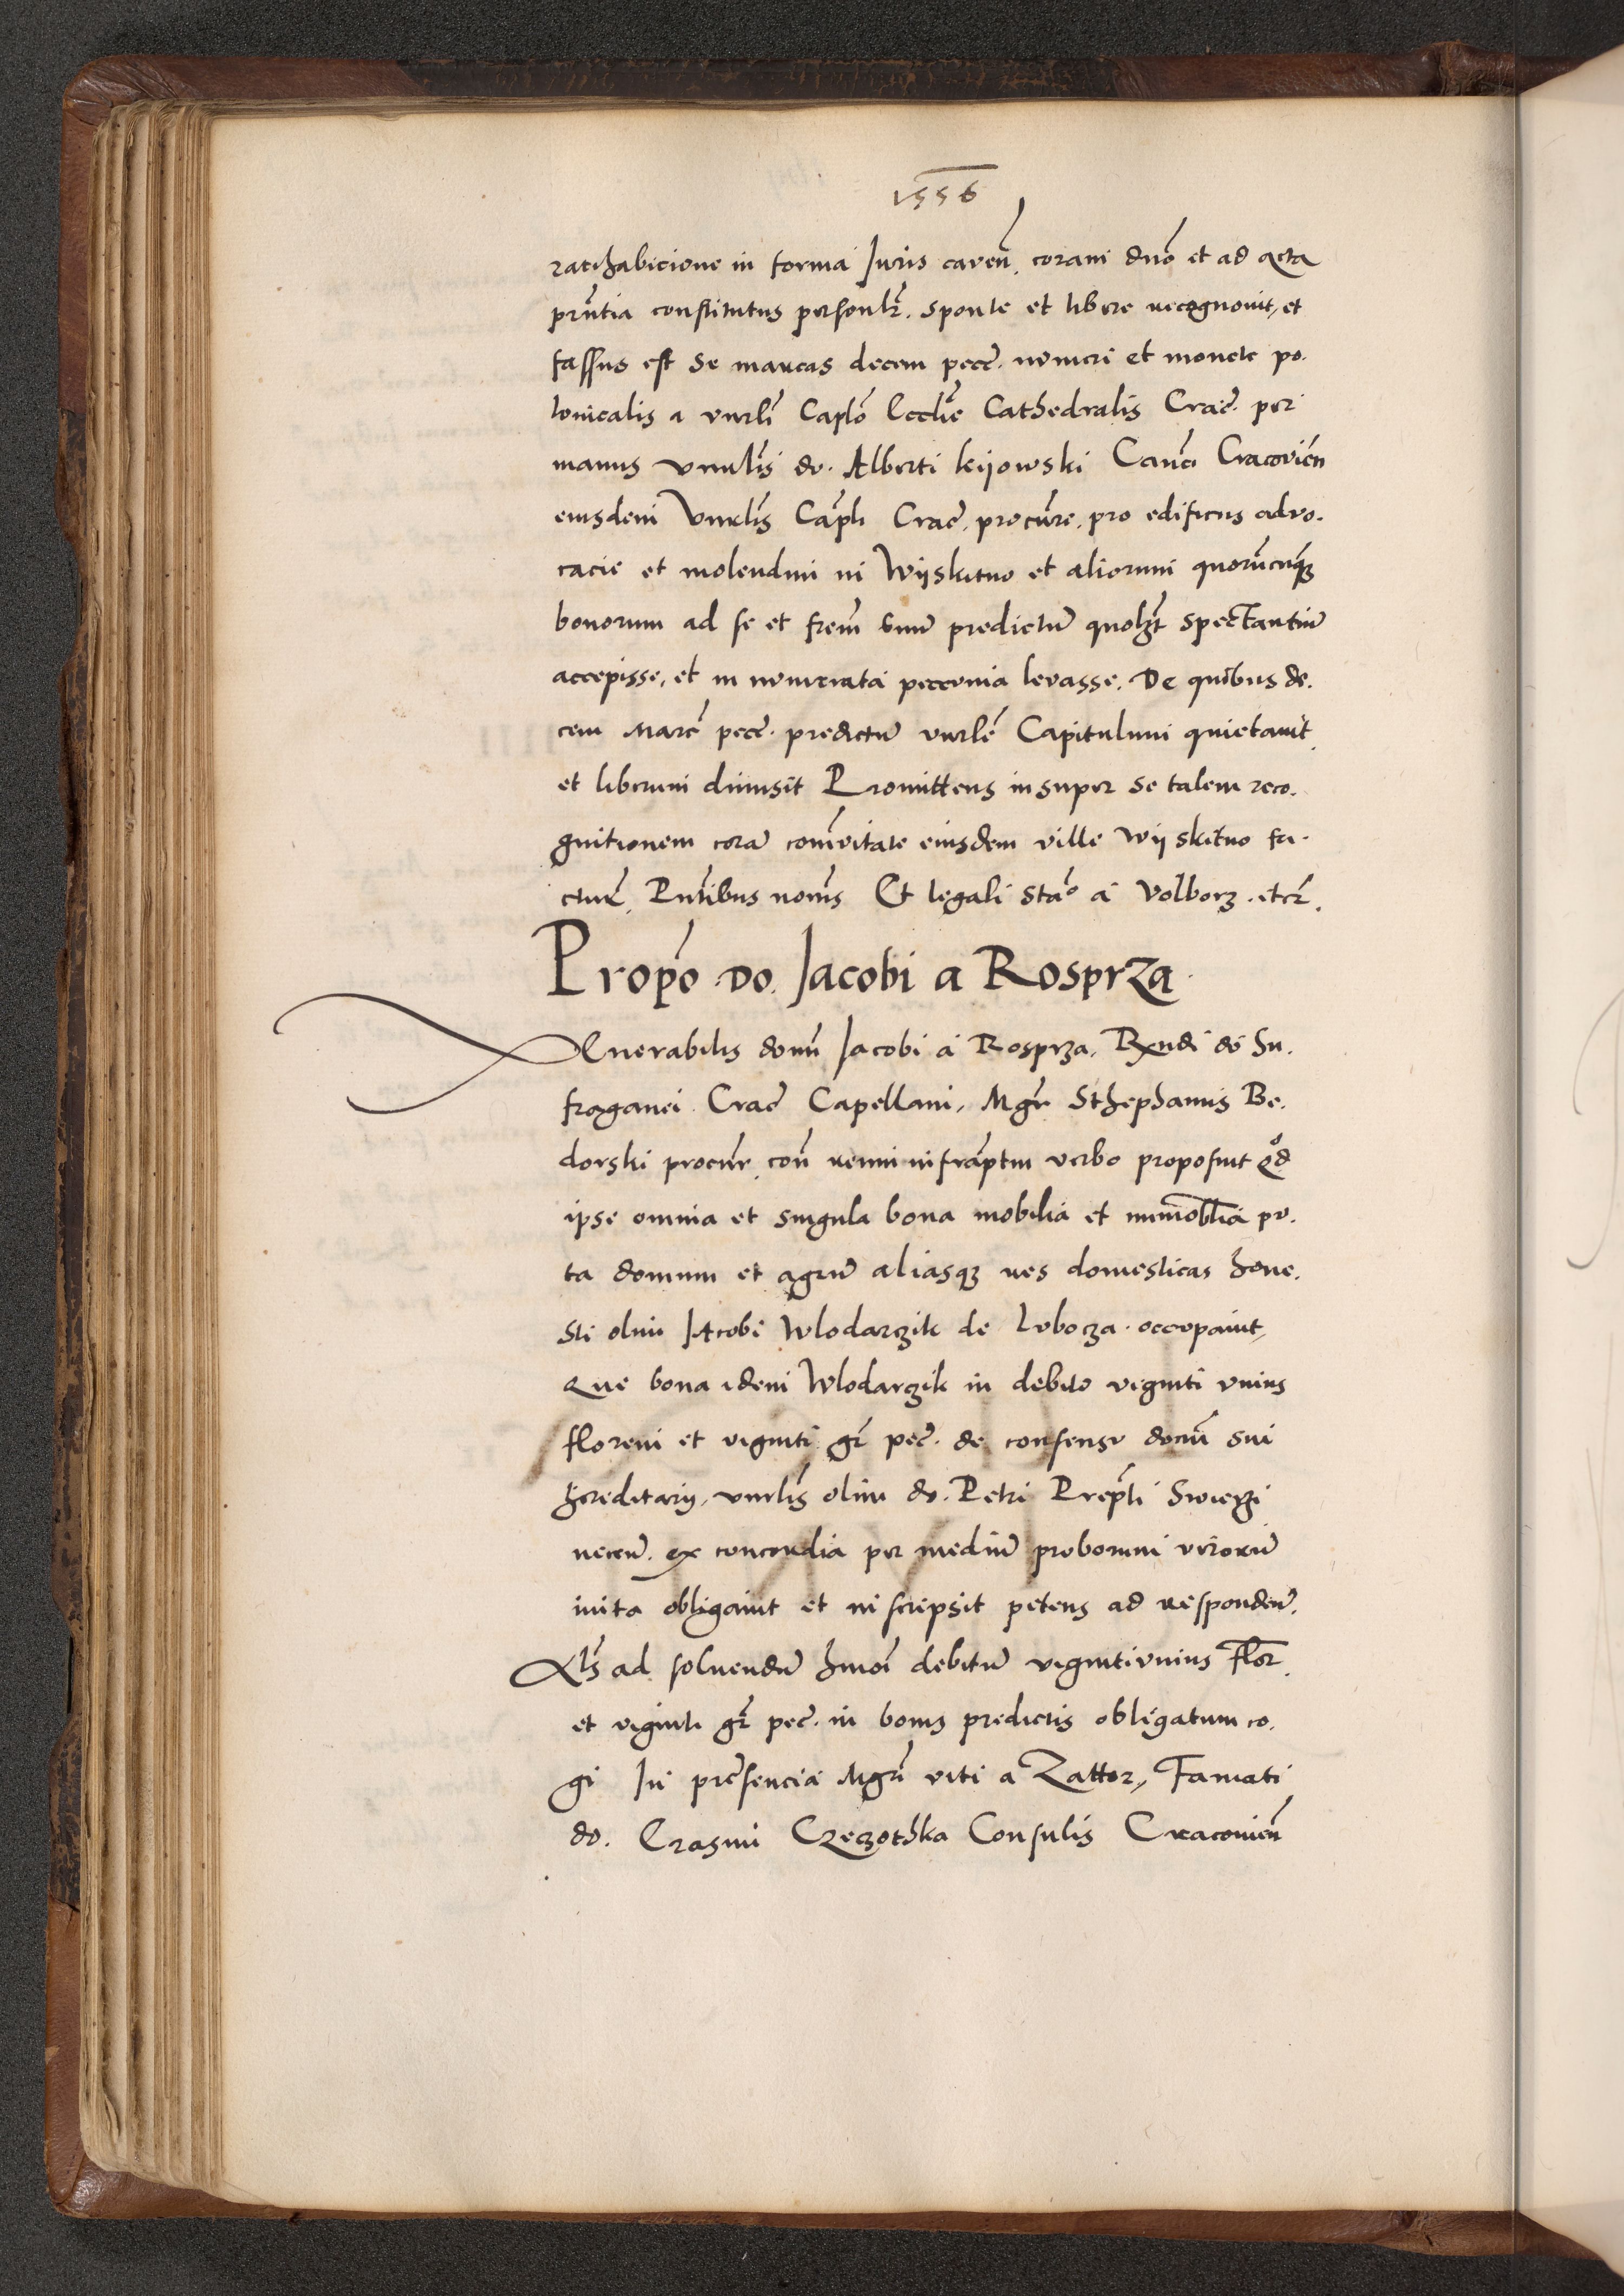 1556
rathabicione in forma Juris caveñ. coram dnõ et ad acta
prñtia constitutus personlr̃. sponte et libere recognovit, et
fassus est se marcas decem pecc̃. numeri et monete po.
lonicalis a vnrli Caplõ Ecclie Cathedralis Crac̃. per
manus vnrlis do. Alberti kijowski Canci Cracovieñ
eiusdem Vnrlis Capli Crac̃. procure. pro edificiis advo.
cacie et molendini in Wijskitno et aliorum quorũcũqʒ
bonorum ad se et frem̃ suũ predictũ quolʒt spectantiũ
accepisse, et in numerata peccunia levasse. De quibus de.
cem Marc̃ pecc̃. predictũ vnrle Capitulum quietavit
et liberum dimisit Promittens insuper se talem reco.
gnitionem corã comũitate eiusdem ville Wijskitno fa.
cturũ. Pñtibus noñis Et legali Stao a Volborz. etcr̃.
Propõ Do. Jacobi a Rosprza
Venerabilis domñ Jacobi a Rosprza. Rxndi do Su.
fraganei Crac̃ Capellani, Mgr̃ Sthephanus Be.
dorski procur̃. coñ reum infrãptm verbo proposuit qđ
ipse omnia et singula bona mobilia et immobilia pu.
ta domum et agrũ aliasqʒ res domesticas hone.
sti olim Jacobi Wlodarzik de Lubocza. occupavit,
Que bona idem Wlodarzik in debito viginti unius
floreni et viginti gr̃ pec̃. de consensu domñi sui
hereditarij. vnrlis olim do. Petri Prepti Swierzi
necnũ. ex concordia per mediũ proborum virorũ
inita obligavit et inscripsit petens ad respondeñ.
Als ad solvendũ hmoi debitũ vigintiunius flor̃.
et viginti gr̃ pec̃. in bonis predictis obligatum co.
gi In presencia Mgri viti a Zattor, Famati
do. Erasmi Czeczothka Consulis Cracovieñ